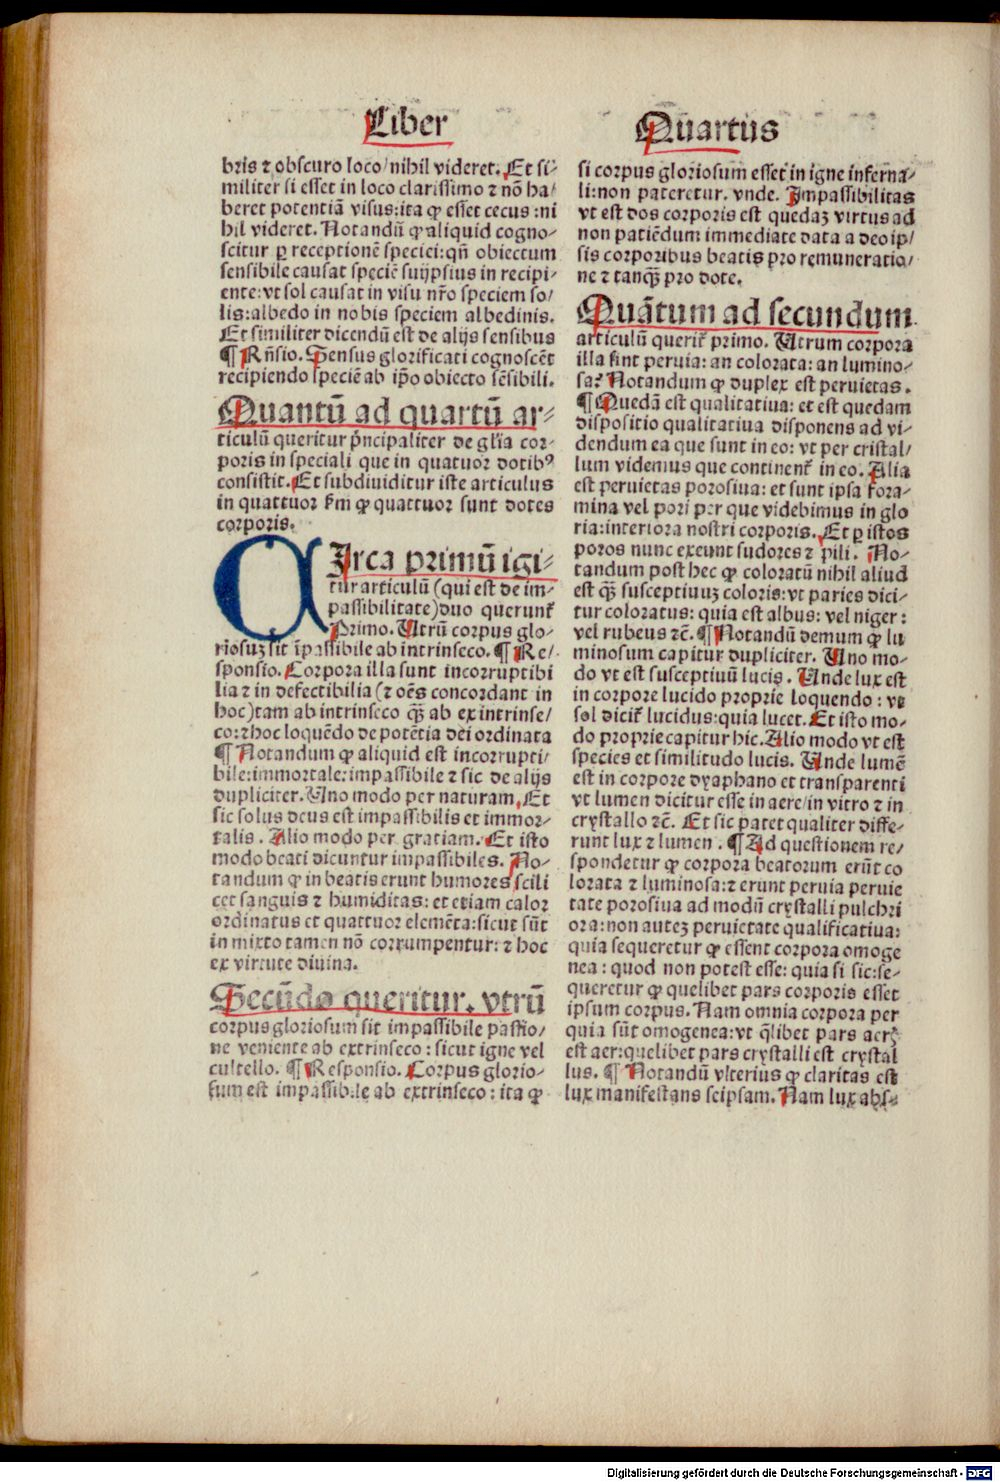 Liber
bris ⁊ obscuro loco/nihil videret. Et si-
militer si esset in loco clarissimo ⁊ nō ha/
beret potentiā visus:ita ꝙ esset cecus:ni
hil videret. Notandū ꝙ aliquid cogno-
scitur ꝑ receptionē speciei:qñ obiectum
sensibile causat speciē suijpsius in recipi-
ente:vt sol causat in visu nr̄o speciem so/
lis:albedo in nobis speciem albedinis.
Et similiter dicendū est de alijs sensibus
¶ Rñsio. Sensus glorificati cognoscēt
recipiendo speciē ab ip̄o obiecto sēsibili.
Quantū ad quartū ar-
ticulū queritur p̄ncipaliter de gl̄ia cor-
poris in speciali que in quatuor dotibꝰ
consistit. Et subdiuiditur iste articulus
in quattuor ẜm ꝙ quattuor sunt dotes
corporis.
CIrca primū igi-
tur articulū (qui est de im-
passibilitate)duo querunt̄
Primo. Utrū corpus glo-
riosuꝫ sit īpassibile ab intrinseco. ¶ Re/
sponsio. Corpora illa sunt incorruptibi
lia ⁊ in defectibilia (⁊ oēs concordant in
hoc)tam ab intrinseco q̄ꝫ ab extrinse/
co:⁊ hoc loquēdo de potētia dei ordinata
¶ Notandum ꝙ aliquid est incorrupti-
bile:immortale:impassibile ⁊ sic de alijs
dupliciter. Uno modo per naturam, Et
sic solus deus est impassibilis et immor-
talis. Alio modo per gratiam. Et isto
modo beati dicuntur impassibiles. No-
tandum ꝙ in beatis erunt humores scili
cet sanguis ⁊ humiditas: et etiam calor
ordinatus et quattuor elemēta:sicut sūt
in mixto tamen nō corrumpentur: ⁊ hoc
ex virtute diuina.
Secūdo queritur. vtrū
corpus gloriosum sit impassibile passio/
ne veniente ab extrinseco: sicut igne vel
cultello. ¶ Responsio. Corpus glorio-
sum est impassibile ab extrinseco: ita ꝙ
Quartus
si corpus gloriosum esset in igne inferna/
li:non pateretur. vnde. Impassibilitas
vt est dos corporis est quedaꝫ virtus ad
non patiēdum immediate data a deo ip/
sis corporibus beatis pro remuneratio/
ne ⁊ tanq̄ꝫ pro dote.
Quātum ad secundum
articulū querit̄ primo. Utrum corpora
illa sint peruia: an colorata: an lumino-
sa? Notandum ꝙ duplex est peruietas.
¶ Quedā est qualitatiua: et est quedam
dispositio qualitatiua disponens ad vi-
dendum ea que sunt in eo: vt per cristal/
lum videmus que continent̄ in eo. Alia
est peruietas porosiua: et sunt ipsa fora-
mina vel pori per que videbimus in glo
ria:interiora nostri corporis. Et ꝑ istos
poros nunc exeunt sudores ⁊ pili. No-
tandum post hec ꝙ coloratū nihil aliud
est q̄ꝫ susceptiuuꝫ coloris: vt paries dici-
tur coloratus: quia est albus: vel niger:
vel rubeus ⁊c̄. ¶ Notandū demum ꝙ lu
minosum capitur dupliciter. Uno mo-
do vt est susceptiuū lucis. Unde lux est
in corpore lucido proprie loquendo: vt
sol dicit̄ lucidus:quia lucet. Et isto mo-
do proprie capitur hic. Alio modo vt est
species et similitudo lucis. Unde lumē
est in corpore dyaphano et transparenti
vt lumen dicitur esse in aere/in vitro ⁊ in
crystallo ⁊c̄. Et sic patet qualiter diffe-
runt lux ⁊ lumen. ¶ Ad questionem re/
spondetur ꝙ corpora beatorum erūt co
lorata ⁊ luminosa:⁊ erunt peruia peruie
tate porosiua ad modū crystalli pulchri
ora:non auteꝫ peruietate qualificatiua:
quia sequeretur ꝙ essent corpora omoge
nea: quod non potest esse: quia si sic:se-
queretur ꝙ quelibet pars corporis esset
ipsum corpus. Nam omnia corpora per
quia sūt omogenea: vt q̄libet pars aeris
est aer:quelibet pars crystalli est crystal
lus. ¶ Notandū vlterius ꝙ claritas est
lux manifestans seipsam. Nam lux abs-
Digitalisierung gefördert durch die Deutsche Forschungsgemeinschaft - DFG